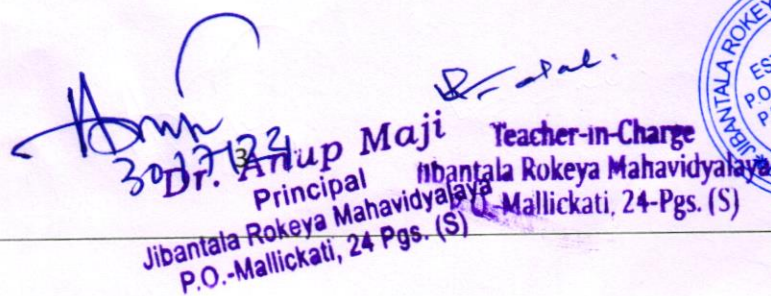 30/7/24
3
Dr. Anup Maji
Principal
Jibantala Rokeya Mahavidyalaya
P.O.-Mallickati, 24 Pgs. (S)
Teacher-in-Charge
Jibantala Rokeya Mahavidyalaya
P.O.-Mallickati, 24-Pgs. (S)
JIBANTALA ROKEY
EST
P.O.
P